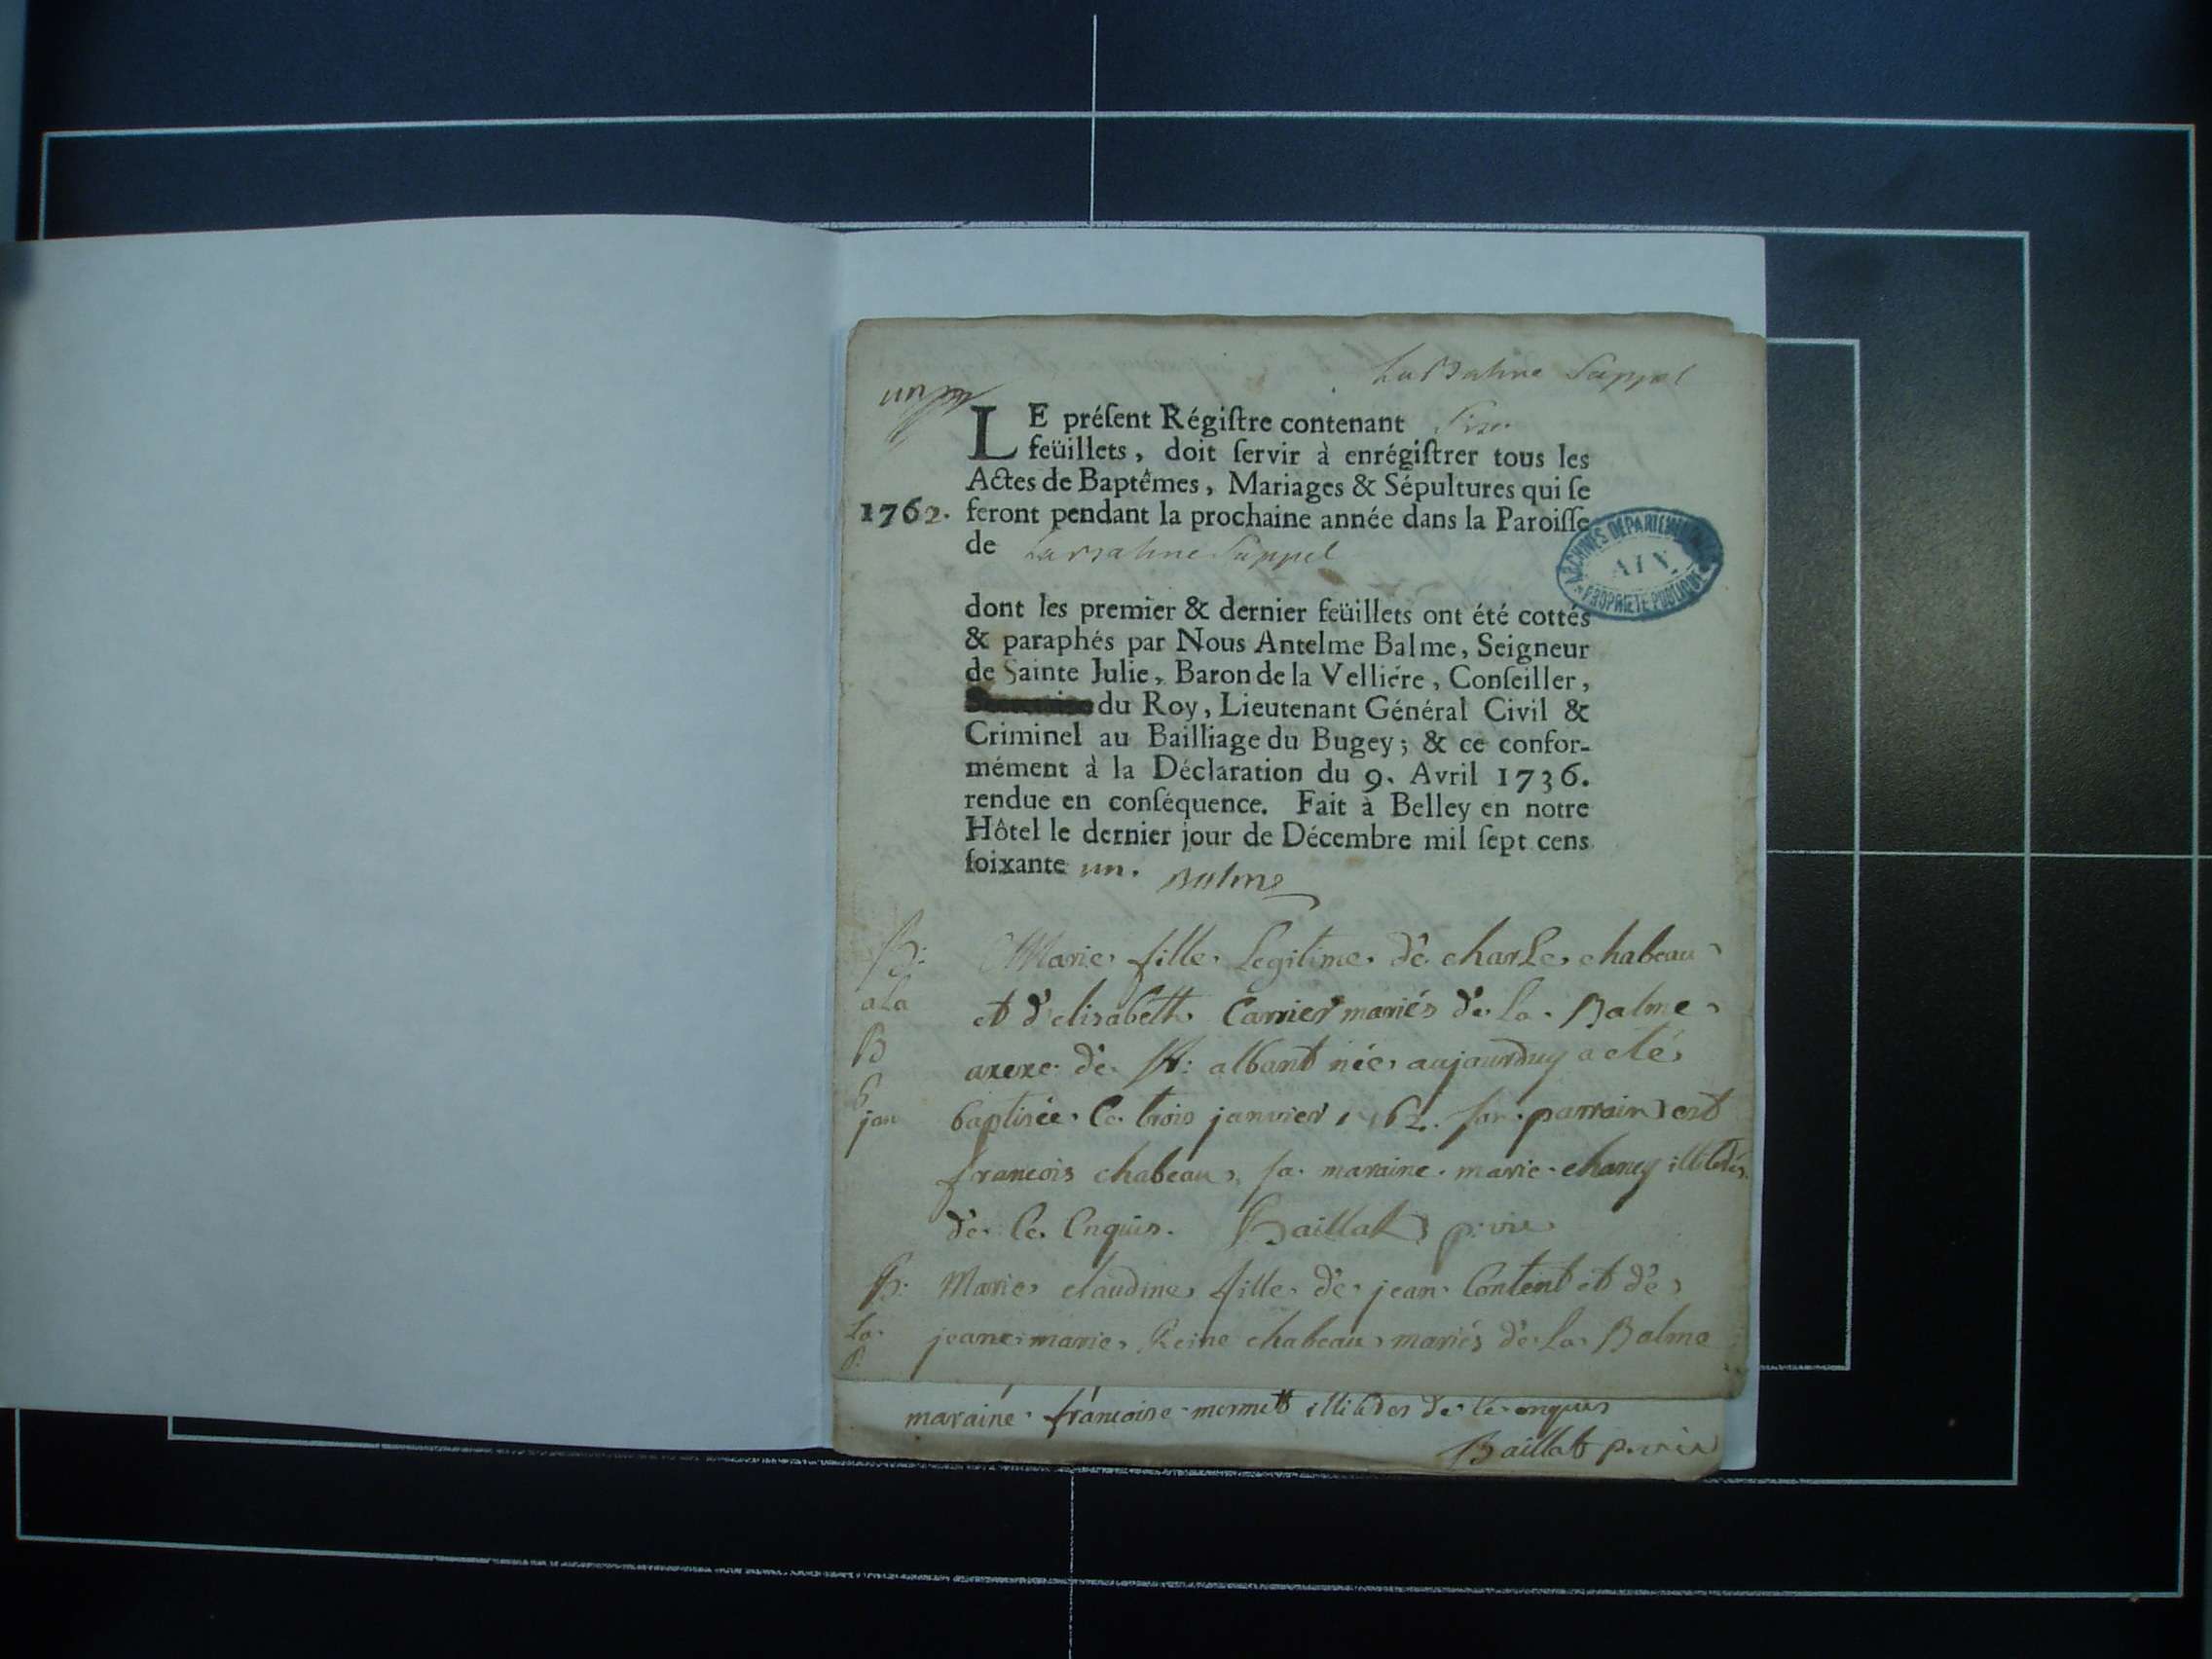 La Balme Sappel
un
LE préſent Régiſtre contenant Six
feüillets, doit ſervir à enrégiſtrer tous les
Actes de Baptêmes, Mariages & Sépultures qui ſe
1762. feront pendant la prochaine année dans la Paroiſſe
de La Balme Sappel
ARCHIVES DEPARTEMENTALES
AIN
PROPRIETE PUBLIQUE
dont les premier & dernier feüillets ont été cottés
& paraphés par Nous Antelme Balme, Seigneur
de Sainte Julie, Baron de la Velliére, Conſeiller,
du Roy, Lieutenant Général Civil &
Criminel au Bailliage du Bugey; & ce confor-
mément à la Déclaration du 9. Avril 1736.
rendue en conſéquence. Fait à Belley en notre
Hôtel le dernier jour de Décembre mil ſept cens
ſoixante un. Balme
B: Marie fille Legitime de charle chabeau
a la et d'elisabeth Carrier mariés de la Balme
B anexe de St: albant née aujourduy a eté
jan baptisée le trois janvier 1762. son parrain est
francois chabeau, sa maraine marie chaney illiteres
de Cenquis. Baillat p. vic
B: Marie claudine fille de jean Content et de
La jeane marie Reine chabeau mariés de la Balme
B
maraine francoise mermet illiteres de
Baillat p. vic